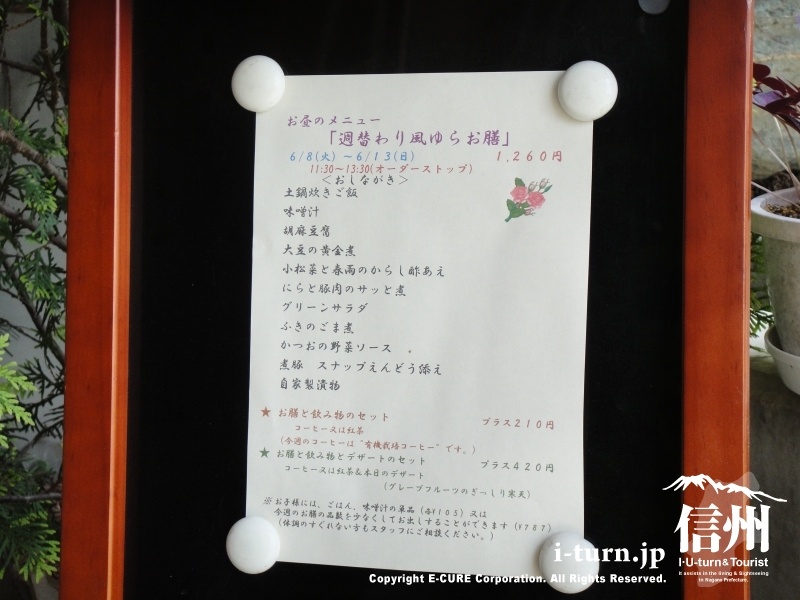 お昼のメニュー
「週替わり風ゆらお膳」
6/8(火)～6/13(日) 1,260円
11:30～13:30(オーダーストップ)
＜おしながき＞
土鍋炊きご飯
味噌汁
胡麻豆腐
大豆の黄金煮
小松菜と春雨のからし酢あえ
にらと豚肉のサッと煮
グリーンサラダ
ふきのごま煮
かつおの野菜ソース 。
煮豚 スナップえんどう添え
自家製漬物
★ お膳と飲み物のセット プラス210円
コーヒー又は紅茶
(今週のコーヒーは"有機栽培コーヒー"です。)
★ お膳と飲み物とデザートのセット プラス420円
コーヒー又は紅茶&本日のデザート
(グレープフルーツのぎっしり寒天)
※お子様には、ごはん、味噌汁の単品(各¥105)又は
今週のお膳の品数を少なくしてお出しすることができます(¥787)
(体調のすぐれない方もスタッフにご相談ください。)
信州
i-turn.jp
I・U-turn&Tourist
It assists in the living & Sightseeing
in Nagano Prefecture.
Copyright E-CURE Corporation. All Rights Reserved.